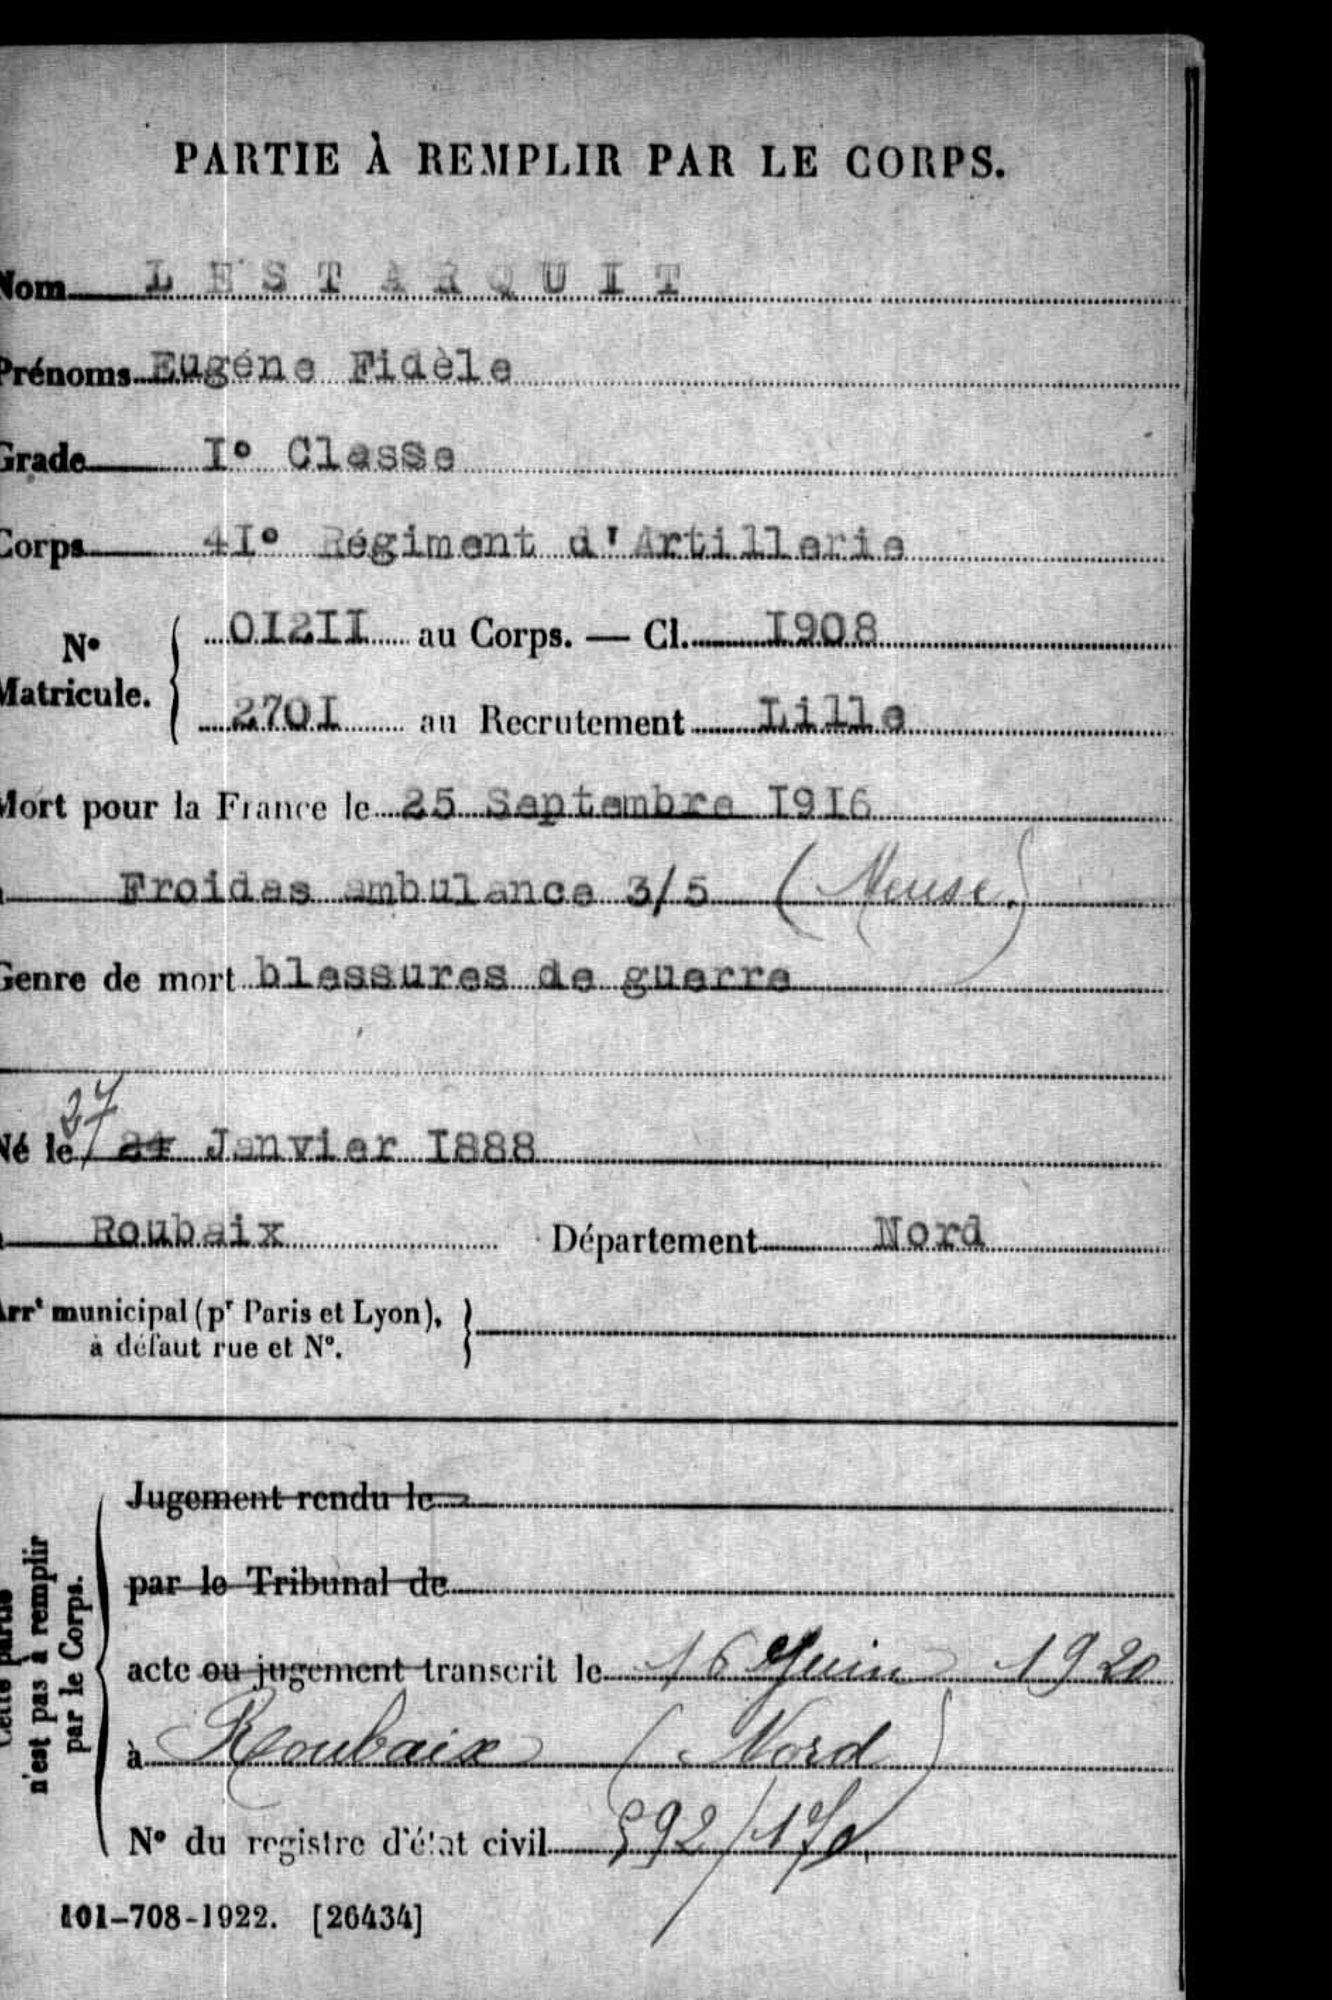 PARTIE À REMPLIR PAR LE CORPS.
Nom LESTARQUIT
Prénoms Eugéne Fidèle
Grade I° Classe
Corps 4I° Régiment d'Artillerie
N° Matricule.
0I2II au Corps. — Cl. I908
270I au Recrutement Lille
Mort pour la France le 25 Septembre I9I6
Froides ambulance 3/5 (Meuse.)
Genre de mort blessures de guerre
27
Né le Janvier I888
Roubaix Département Nord
Arrt municipal (pr Paris et Lyon), à défaut rue et N°.
Cette partie n'est pas à remplir par le Corps.
Jugement rendu le
par le Tribunal de
acte ou jugement transcrit le 16 Juin 1920
à Roubaix (Nord)
N° du registre d'état civil 592/170
101-708-1922. [26434]